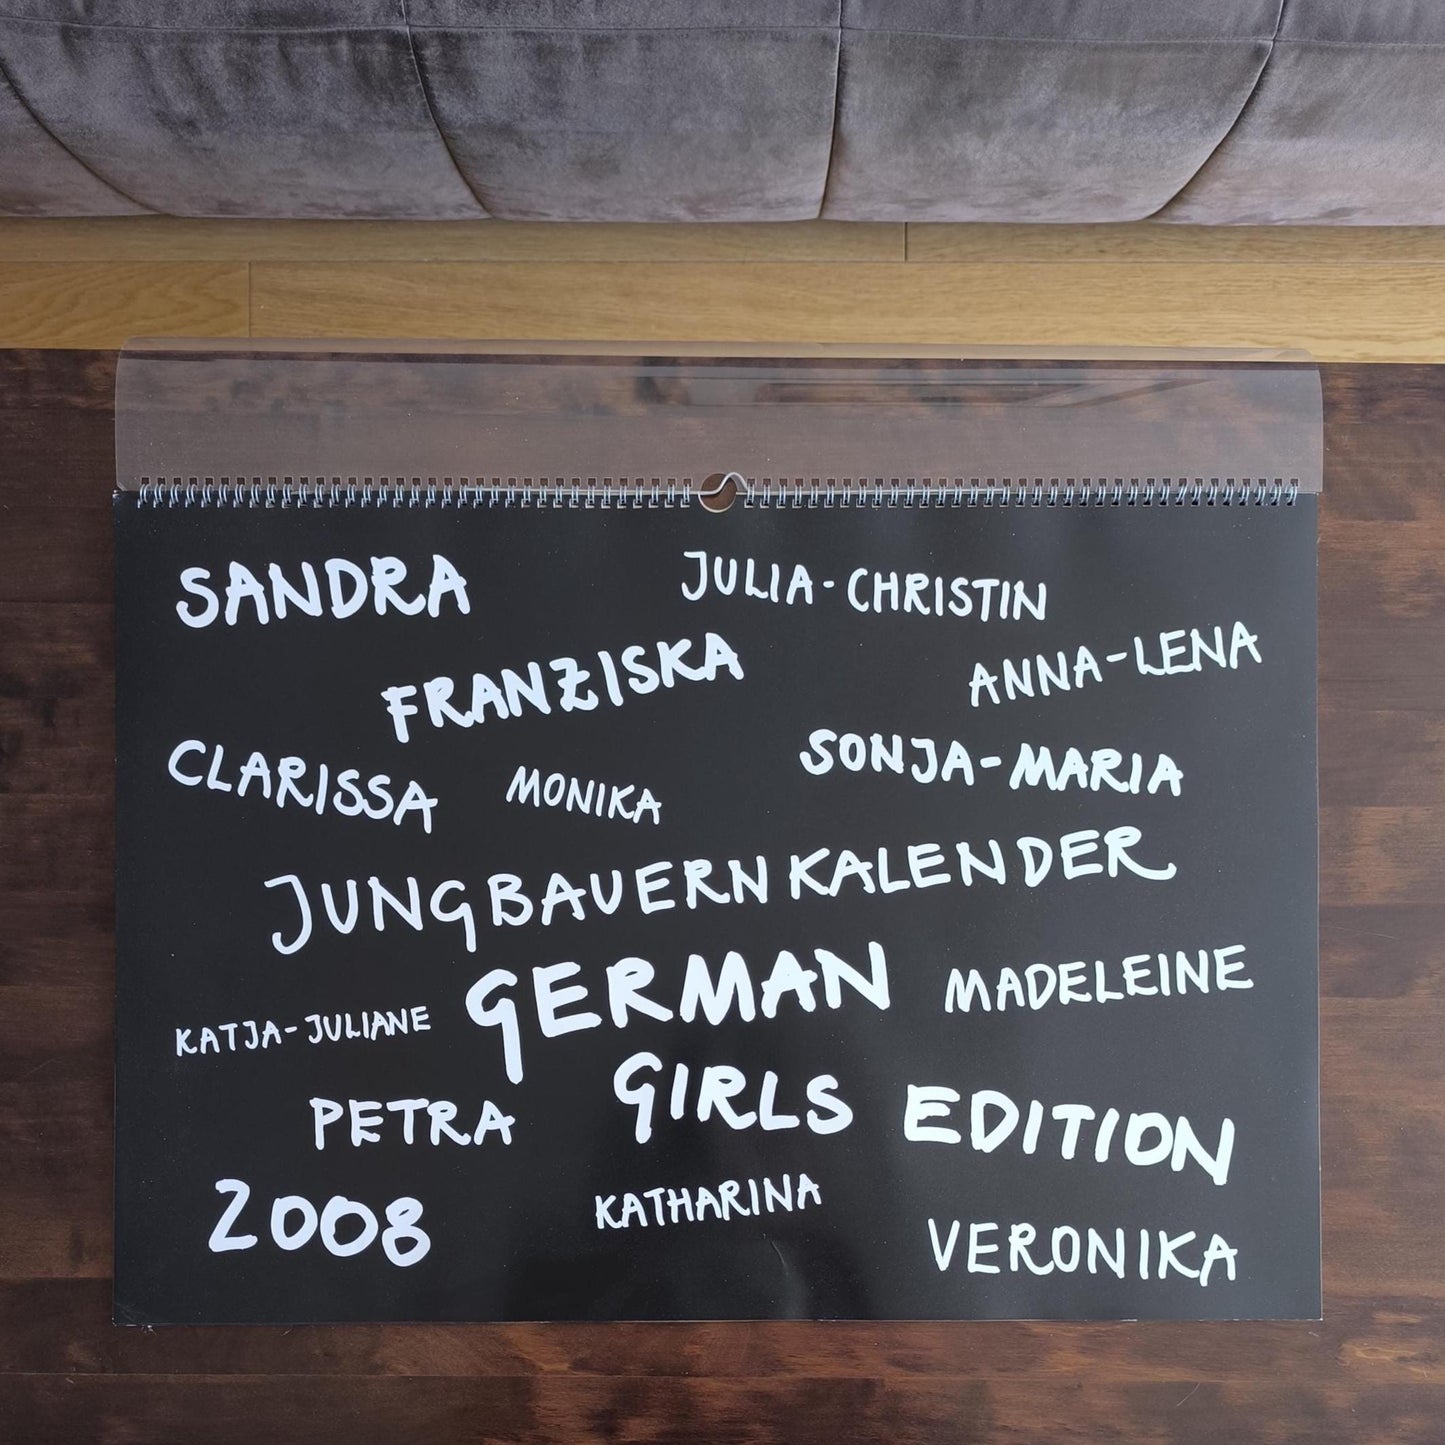 SANDRA
JULIA-CHRISTIN
FRANZISKA
ANNA-LENA
CLARISSA
MONIKA
SONJA-MARIA
JUNGBAUERNKALENDER
GERMAN
MADELEINE
KATJA-JULIANE
GIRLS
EDITION
PETRA
2008
KATHARINA
VERONIKA